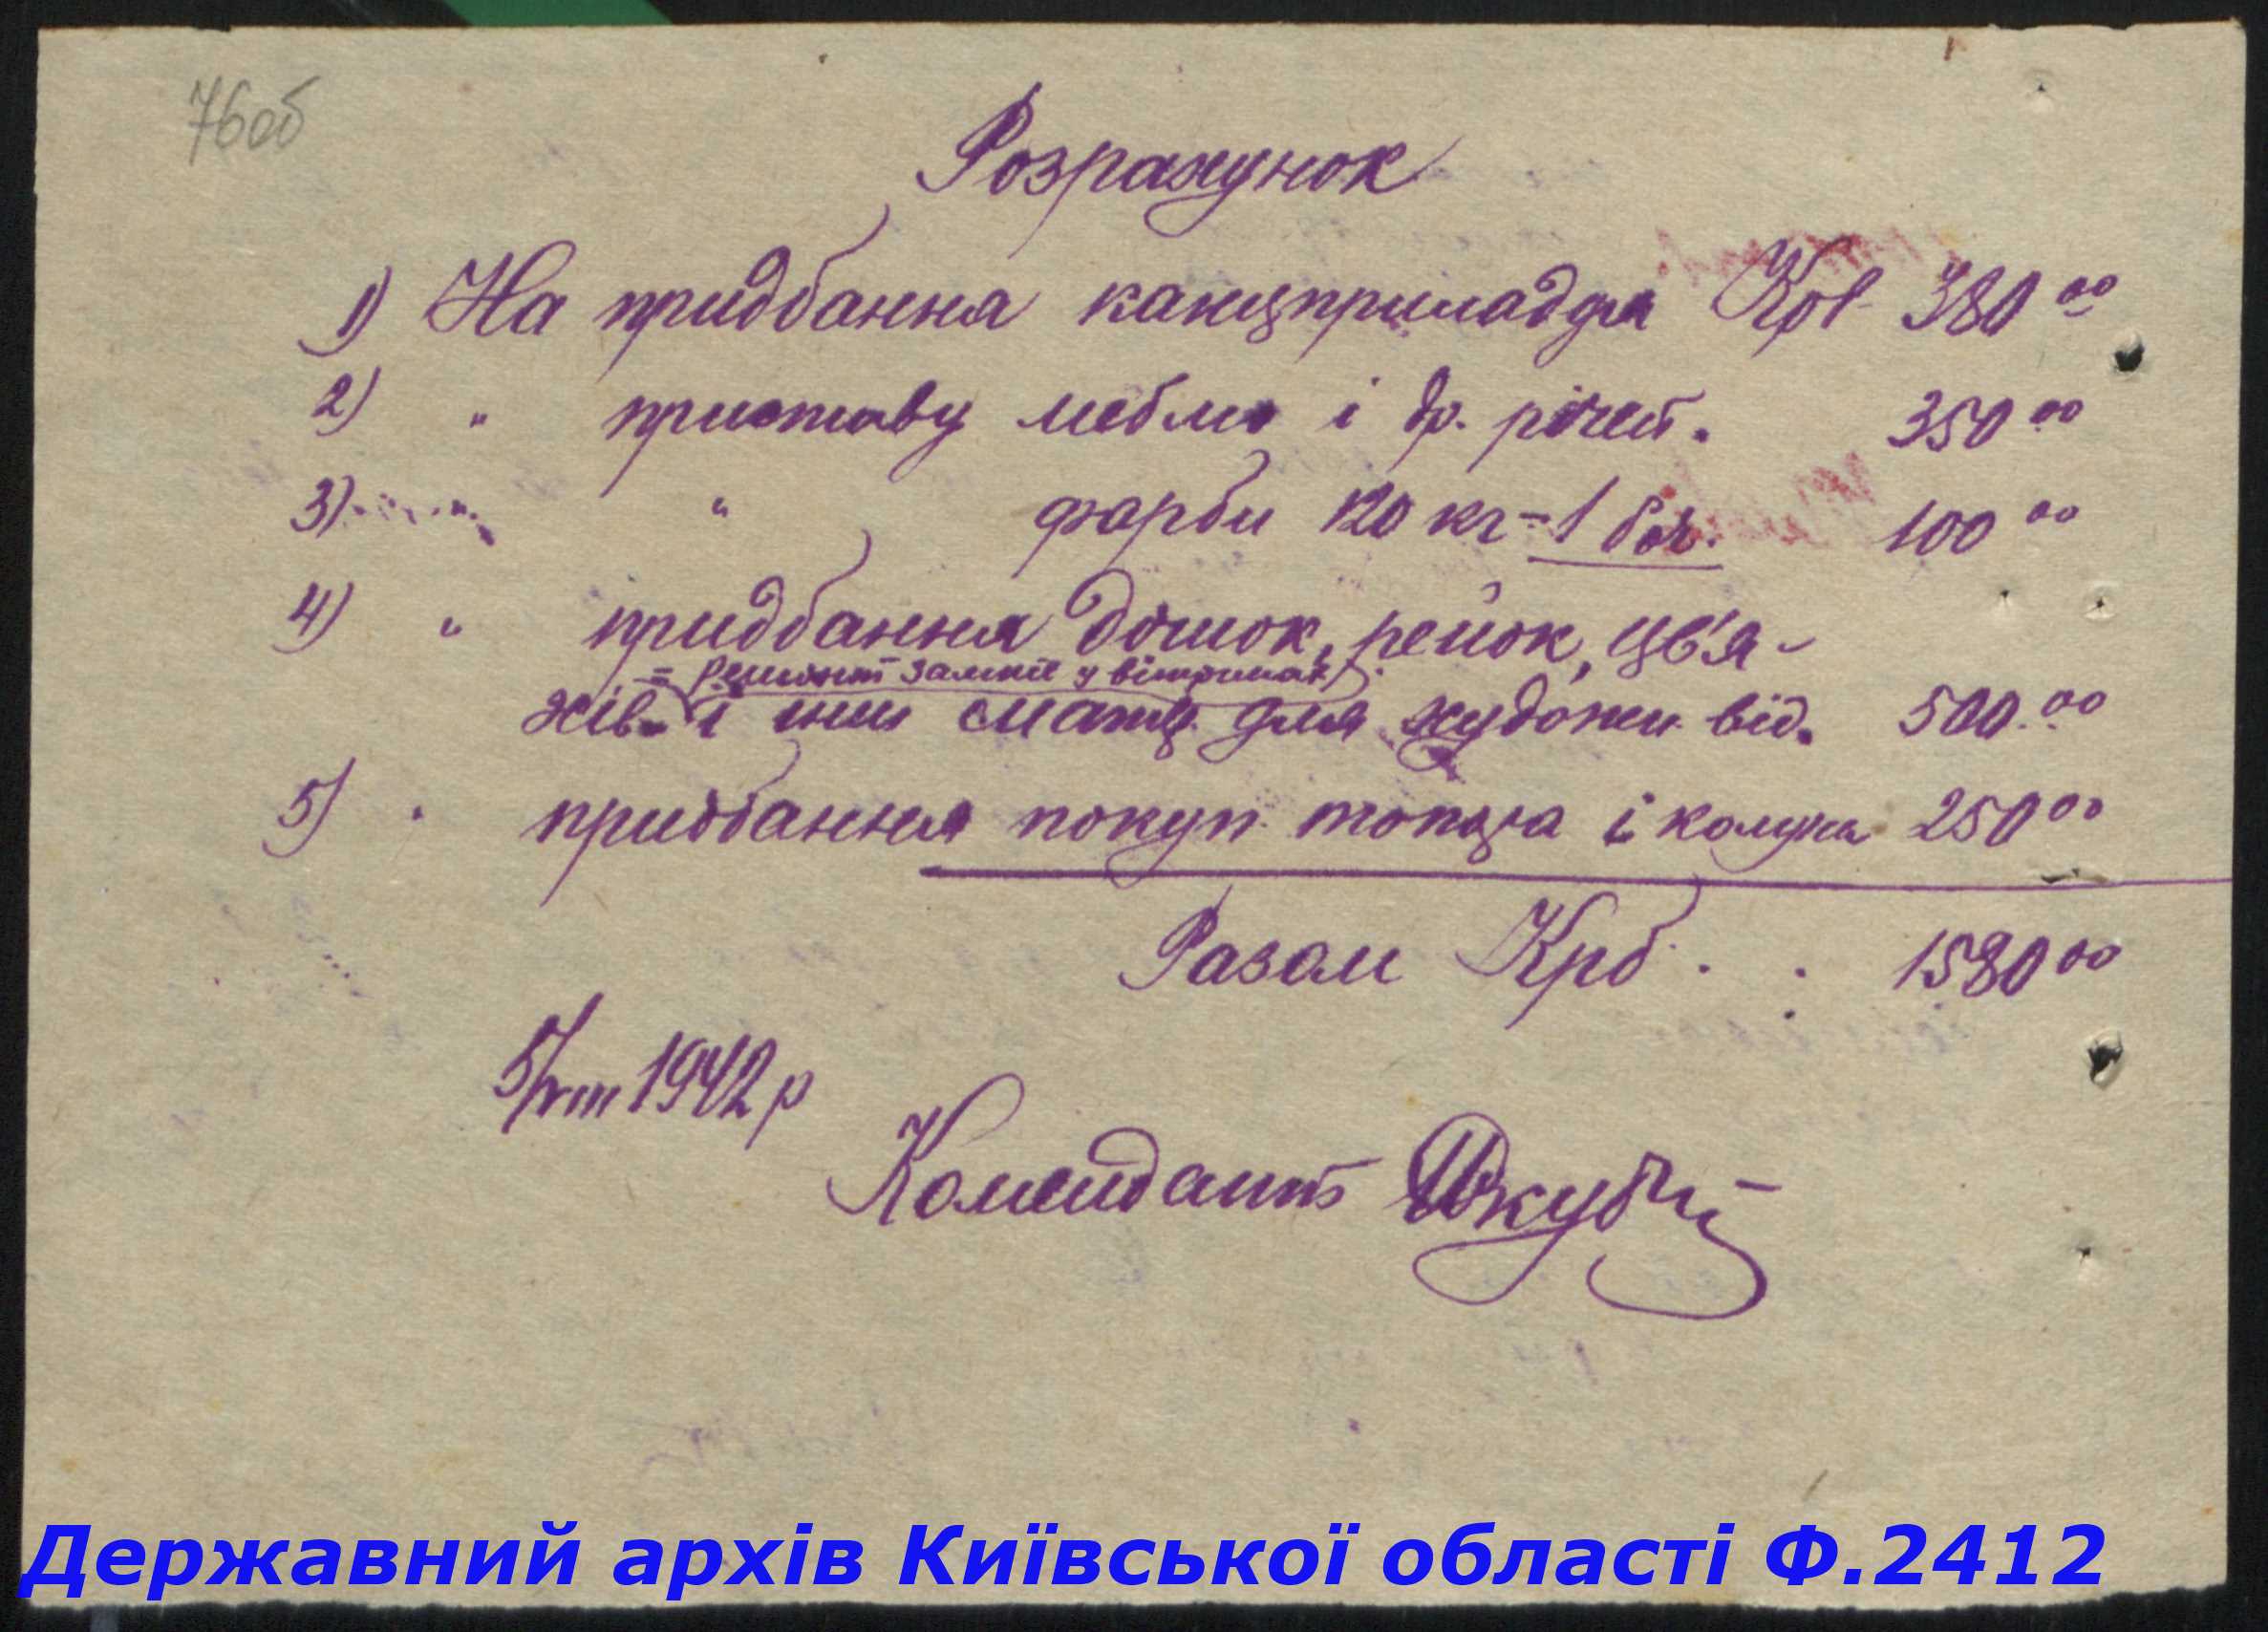 76об
Розрахунок
1) На придбання канцприладдя Крб 380 00
2) " приставу меблю і др. річей. 350 00
3) " фарби 120 кг = 1 боч. 100 00
4) " придбання дошок, рейок, цв'я-
= ремонт замків у вітринах
хів і инш для художн. від. 500.00
5) " придбання покуп. і 250 00
Разом Крб. 1580 00
5/VIII 1942 р
Комендант
Державний архів Київської області Ф.2412